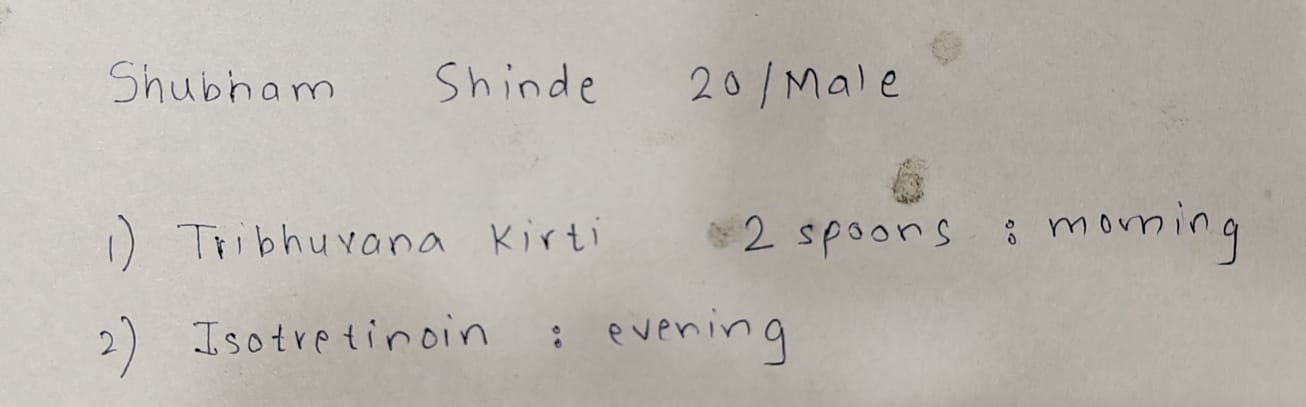 Shubham Shinde 20/Male
1) Tribhuvana Kirti 2 spoons : morning
2) Isotretinoin : evening